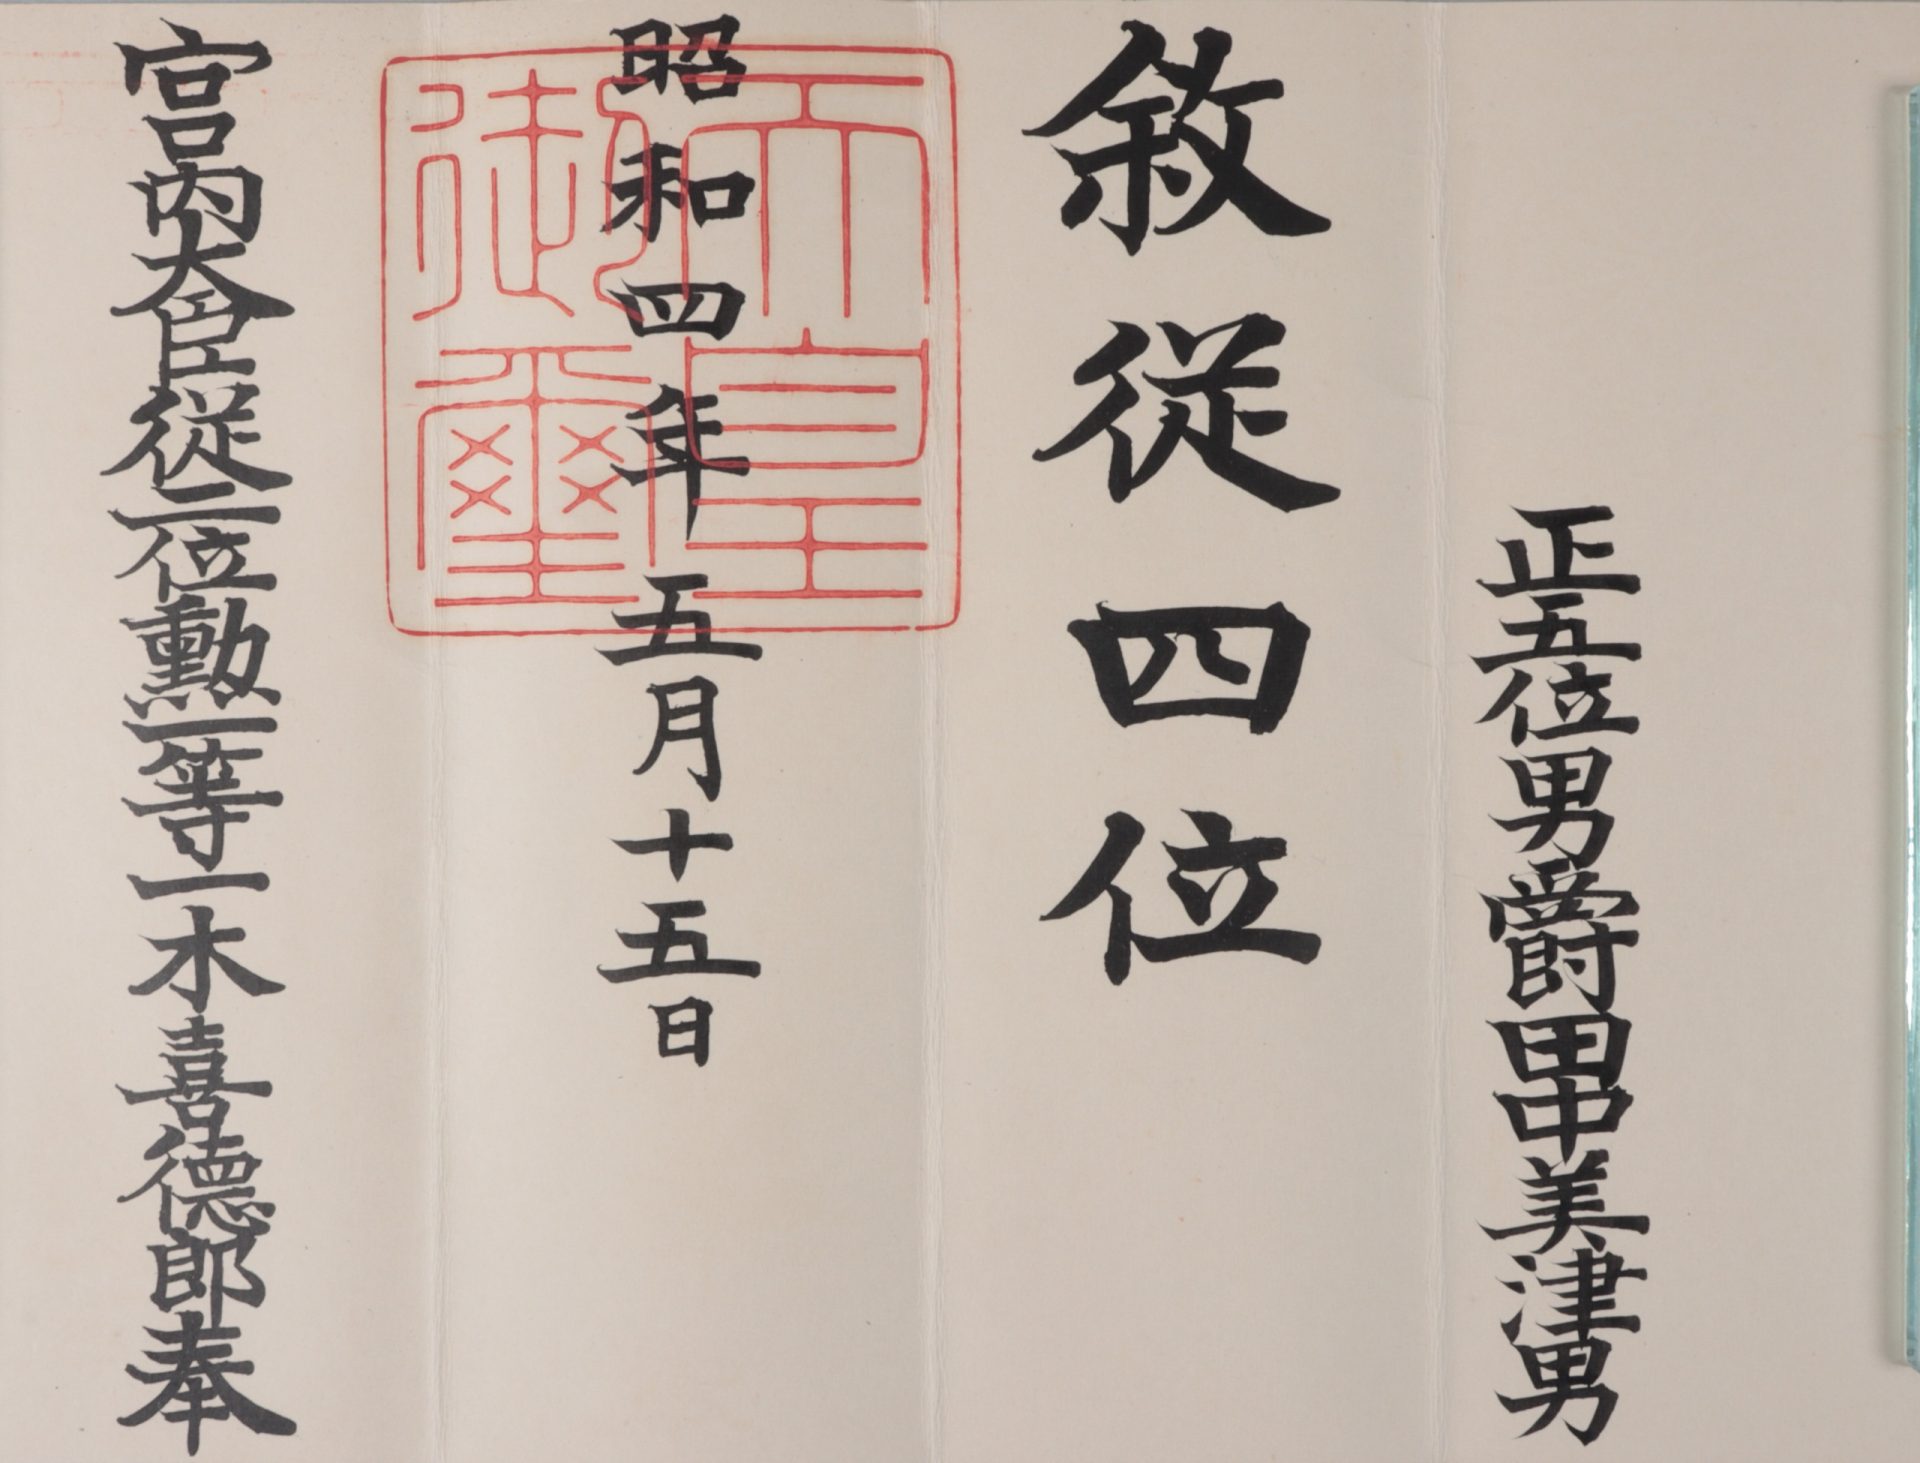 正五位男爵田中美津男
敘從四位
昭和四年五月十五日
天皇御璽
宮内大臣從二位勳一等一木喜德郎奉